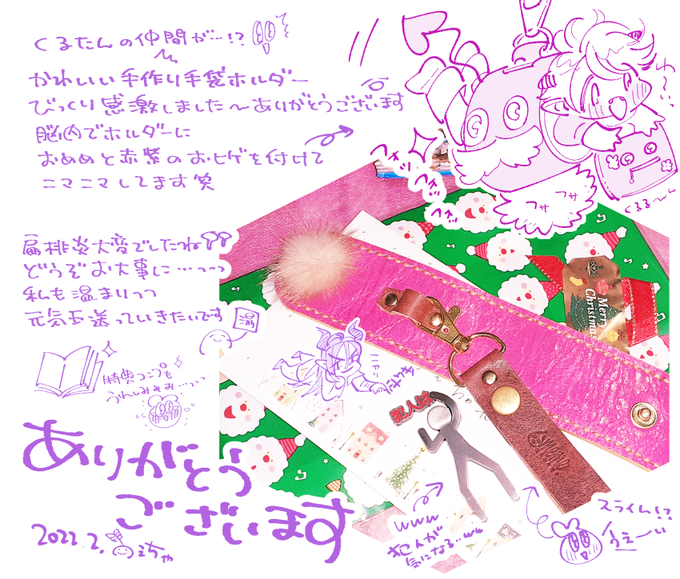 くるたんの仲間が…!?
かわいい手作り手袋ホルダー
びっくり感激しました〜ありがとうございます
脳内でホルダーに
おめめと赤紫のおヒゲを付けて
ニマニマしてます笑
フォッ
フォッ
フォッ
フサ フサ
くるる〜ん
扁桃炎大変でしたね
どうぞお大事に…っっ
私も温まりつつ
元気玉送っていきたいです
特典コンプ
うれしみみみ…っっ
Merry
Christmas
犯人は
ありがとう
ございます
2022.2.
えちゃ
www
犯人が
気になる…ww
スライム!?
うえーい